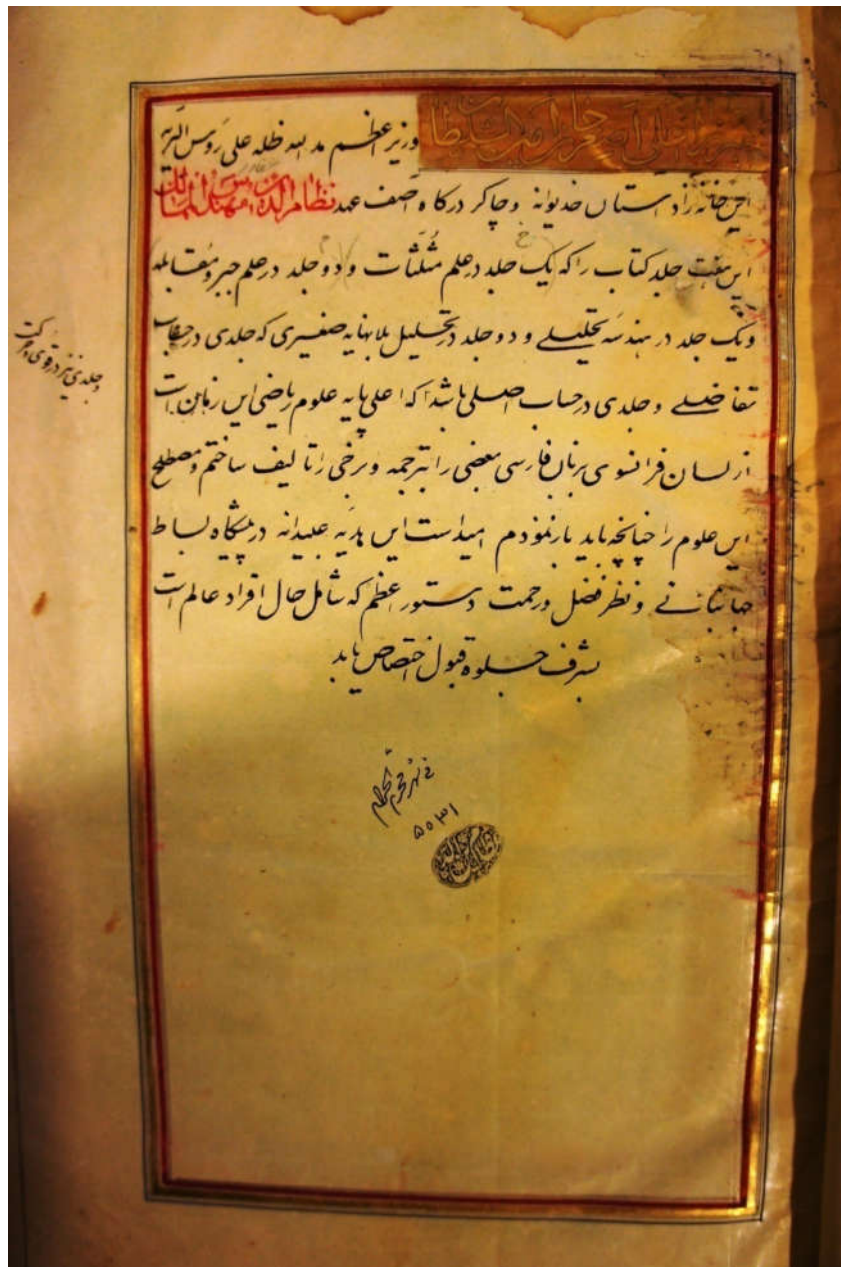 وزیر اعظم مد الله ظله علی رؤس البریه
این خانه زاد آستان خدیوانه و چاکر درگاه آصف عهد نظام الدین مهندس الممالک
این هفت جلد کتاب را که یک جلد در علم مثلثات و دو جلد در علم جبر و مقابله
و یک جلد در هندسه تحلیلی و دو جلد در تحلیل بلانهایه صغیری که جلدی در حساب
تفاضلی و جلدی در حساب اصلی باشد که اعلی پایه علوم ریاضی این زمان است
از لسان فرانسوی بزبان فارسی بعضی را ترجمه و برخی را تالیف ساختم و مصطلح
این علوم را چنانچه باید باز نمودم امید است این هدیه عبیدانه در پیشگاه بساط
جهانبانی و نظر فضل و رحمت دستور اعظم که شامل حال افراد عالم است
بشرف جلوه قبول اختصاص یابد
فی شهر محرم الحرام
۱۳۰۵
و جلدی نیز در قوی و حرکت